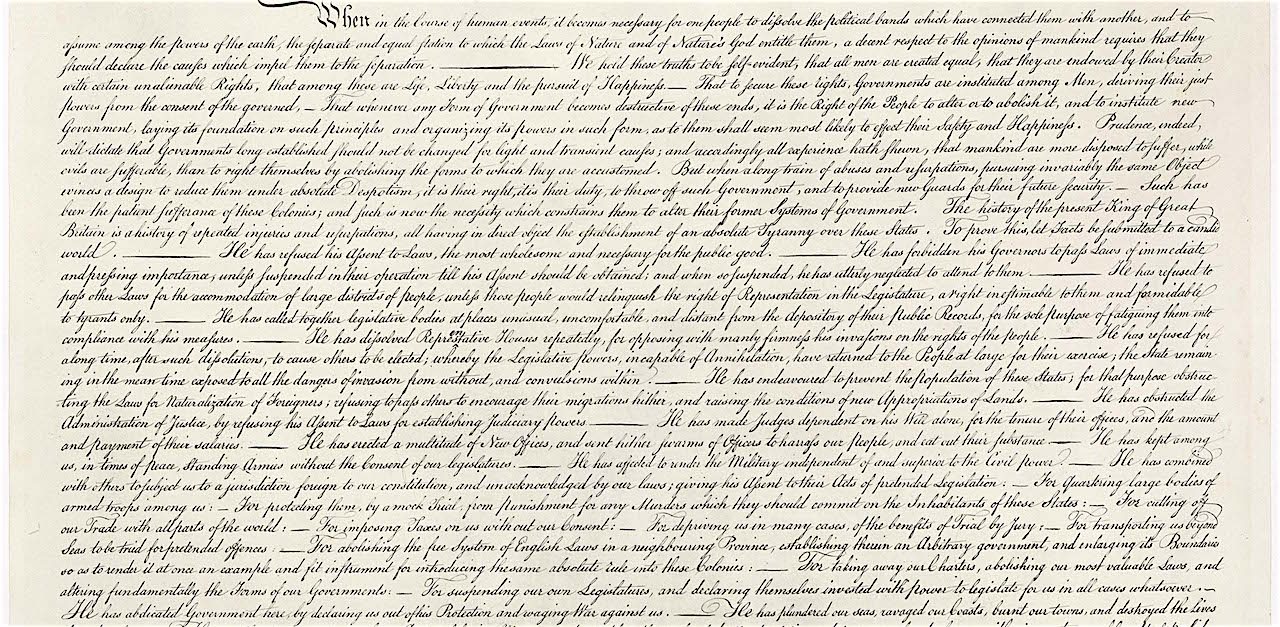 When in the Course of human events, it becomes necessary for one people to dissolve the political bands which have connected them with another, and to
assume among the powers of the earth, the separate and equal station to which the Laws of Nature and of Nature's God entitle them, a decent respect to the opinions of mankind requires that they
should declare the causes which impel them to the separation. — We hold these truths to be self-evident, that all men are created equal, that they are endowed by their Creator
with certain unalienable Rights, that among these are Life, Liberty and the pursuit of Happiness. — That to secure these rights, Governments are instituted among Men, deriving their just
powers from the consent of the governed, — That whenever any Form of Government becomes destructive of these ends, it is the Right of the People to alter or to abolish it, and to institute new
Government, laying its foundation on such principles and organizing its powers in such form, as to them shall seem most likely to effect their Safety and Happiness. Prudence, indeed,
will dictate that Governments long established should not be changed for light and transient causes; and accordingly all experience hath shewn, that mankind are more disposed to suffer, while
evils are sufferable, than to right themselves by abolishing the forms to which they are accustomed. But when a long train of abuses and usurpations, pursuing invariably the same Object
evinces a design to reduce them under absolute Despotism, it is their right, it is their duty, to throw off such Government, and to provide new Guards for their future security. — Such has
been the patient sufferance of these Colonies; and such is now the necessity which constrains them to alter their former Systems of Government. The history of the present King of Great
Britain is a history of repeated injuries and usurpations, all having in direct object the establishment of an absolute Tyranny over these States. To prove this, let Facts be submitted to a candid
world. — He has refused his Assent to Laws, the most wholesome and necessary for the public good. — He has forbidden his Governors to pass Laws of immediate
and pressing importance, unless suspended in their operation till his Assent should be obtained; and when so suspended, he has utterly neglected to attend to them. — He has refused to
pass other Laws for the accommodation of large districts of people, unless those people would relinquish the right of Representation in the Legislature, a right inestimable to them and formidable
to tyrants only. — He has called together legislative bodies at places unusual, uncomfortable, and distant from the depository of their Public Records, for the sole purpose of fatiguing them into
compliance with his measures. — He has dissolved Representative Houses repeatedly, for opposing with manly firmness his invasions on the rights of the people. — He has refused for
a long time, after such dissolutions, to cause others to be elected; whereby the Legislative powers, incapable of Annihilation, have returned to the People at large for their exercise; the State remain-
ing in the mean time exposed to all the dangers of invasion from without, and convulsions within. — He has endeavoured to prevent the population of these States; for that purpose obstruc-
ting the Laws for Naturalization of Foreigners; refusing to pass others to encourage their migrations hither, and raising the conditions of new Appropriations of Lands. — He has obstructed the
Administration of Justice, by refusing his Assent to Laws for establishing Judiciary powers. — He has made Judges dependent on his Will alone, for the tenure of their offices, and the amount
and payment of their salaries. — He has erected a multitude of New Offices, and sent hither swarms of Officers to harrass our people, and eat out their substance. — He has kept among
us, in times of peace, Standing Armies without the Consent of our legislatures. — He has affected to render the Military independent of and superior to the Civil power. — He has combined
with others to subject us to a jurisdiction foreign to our constitution, and unacknowledged by our laws; giving his Assent to their Acts of pretended Legislation: — For Quartering large bodies of
armed troops among us: — For protecting them, by a mock Trial, from punishment for any Murders which they should commit on the Inhabitants of these States: — For cutting off
our Trade with all parts of the world: — For imposing Taxes on us without our Consent: — For depriving us in many cases, of the benefits of Trial by Jury: — For transporting us beyond
Seas to be tried for pretended offences: — For abolishing the free System of English Laws in a neighbouring Province, establishing therein an Arbitrary government, and enlarging its Boundaries
so as to render it at once an example and fit instrument for introducing the same absolute rule into these Colonies: — For taking away our Charters, abolishing our most valuable Laws, and
altering fundamentally the Forms of our Governments: — For suspending our own Legislatures, and declaring themselves invested with power to legislate for us in all cases whatsoever. —
He has abdicated Government here, by declaring us out of his Protection and waging War against us. — He has plundered our seas, ravaged our Coasts, burnt our towns, and destroyed the lives